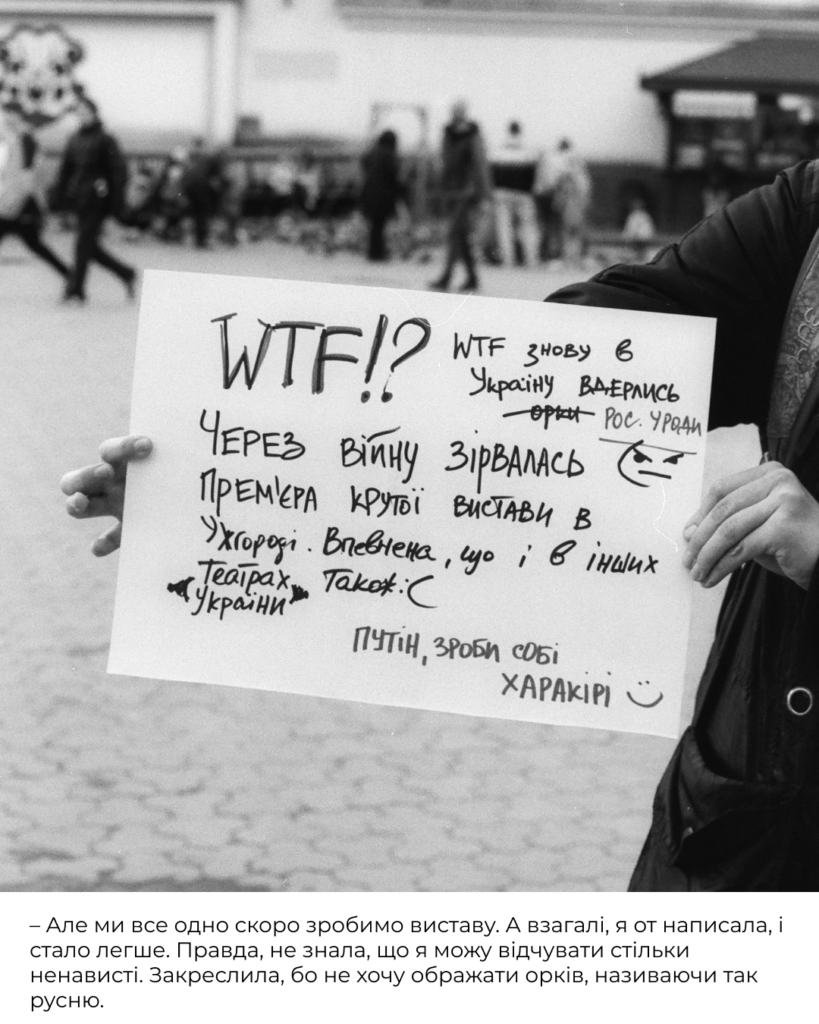 WTF!?
WTF знову в
Україну вдерлись
орки РОС. УРОДИ
ЧЕРЕЗ ВІЙНУ ЗІРВАЛАСЬ
ПРЕМ'ЄРА КРУТОЇ ВИСТАВИ В
Ужгороді. Впевнена, що і в інших
Театрах Також :(
України
ПУТІН, ЗРОБИ СОБІ
ХАРАКІРІ
– Але ми все одно скоро зробимо виставу. А взагалі, я от написала, і
стало легше. Правда, не знала, що я можу відчувати стільки
ненависті. Закреслила, бо не хочу ображати орків, називаючи так
русню.